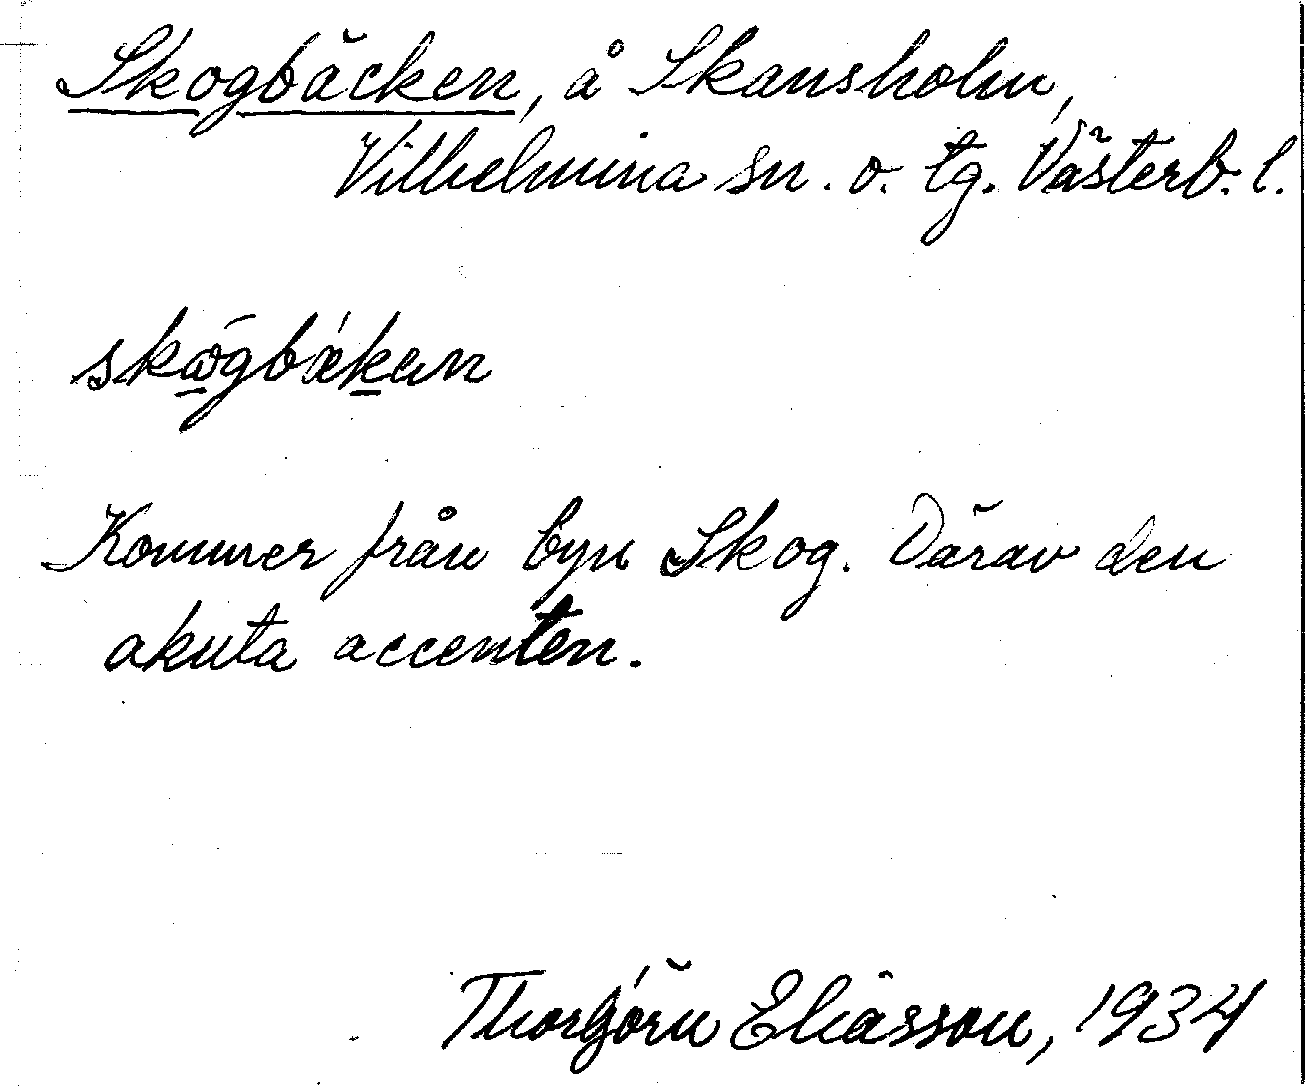 Skogbäcken, å Skansholm,
Vilhelmina sn. o. tg. Västerb. l.
Kommer från byn Skog. Därav den
akuta accenten.
Thorbjörn Eliasson, 1934